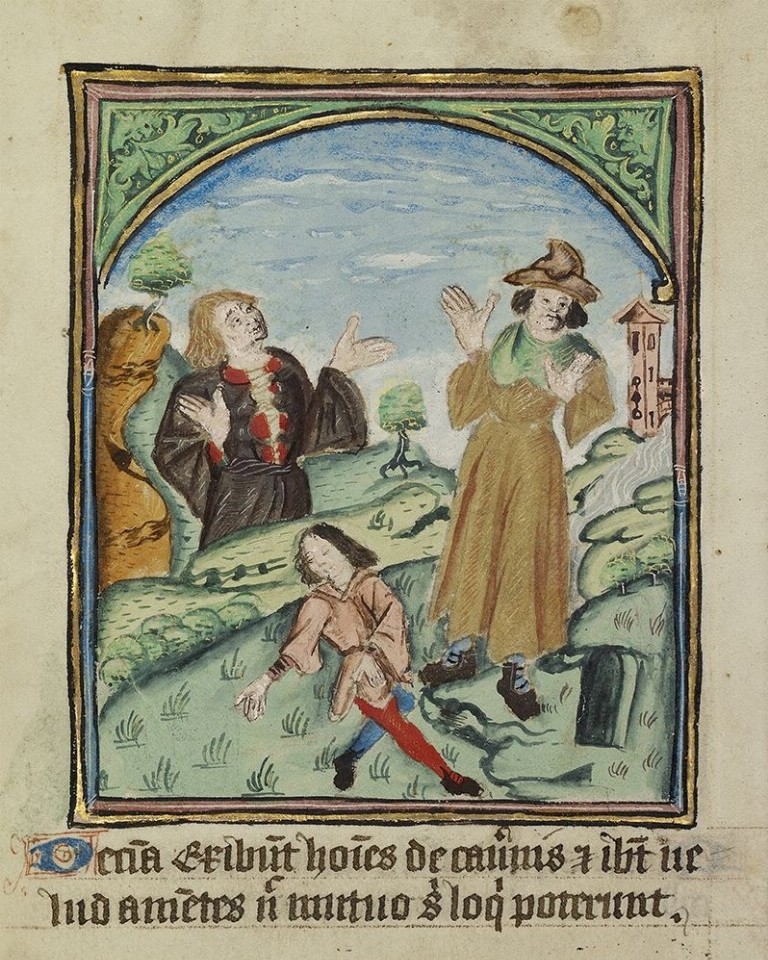 Decīa exibūt hoīes de cauīnis ⁊ ibūt ue
lud amētes nͬ mutuo sͥ loqͥ poterunt.